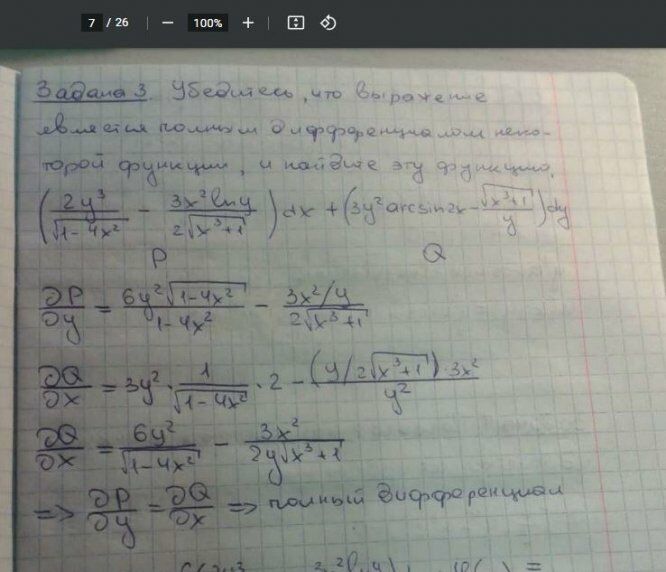 7 / 26 — 100% +
Задача 3. Убедитесь, что выражение
является полным дифференциалом неко-
торой функции, и найдите эту функцию.
(2y³/√(1-4x²) - 3x² ln y/2√(x³+1))dx + (3y² arcsin2x - √(x³+1)/y)dy
P Q
∂P/∂y = 6y²√(1-4x²)/1-4x² - 3x²/y/2√(x³+1)
∂Q/∂x = 3y² · 1/√(1-4x²) · 2 - (y/2√(x³+1))·3x²/y²
∂Q/∂x = 6y²/√(1-4x²) - 3x²/2y√(x³+1)
=> ∂P/∂y = ∂Q/∂x => полный дифференциал